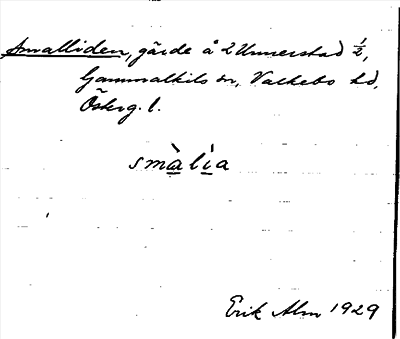 Smalliden, gärde å 2 Unnerstad ½,
Gammalkils sn, Valkebo hd,
Österg. l.
smàlìa
Erik Alm 1929